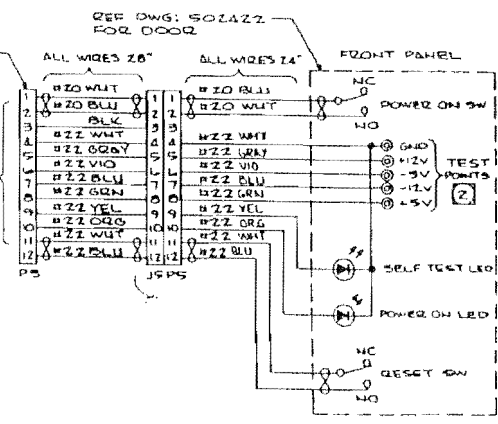 REF DWG: 502422
FOR DOOR
ALL WIRES 28"
ALL WIRES 24"
FRONT PANEL
1 #20 WHT 1
2 #20 BLU 2
3 BLK 3
4 #22 WHT 4
5 #22 GRAY 5
6 #22 VIO 6
7 #22 BLU 7
8 #22 GRN 8
9 #22 YEL 9
10 #22 ORG 10
11 #22 WHT 11
12 #22 BLU 12
P3
J5 P5
1 #20 BLU
2 #20 WHT
3
4 #22 WHT
5 #22 GRAY
6 #22 VIO
7 #22 BLU
8 #22 GRN
9 #22 YEL
10 #22 ORG
11 #22 WHT
12 #22 BLU
NC
POWER ON SW
NO
GND
+12V
-9V
-12V
+5V
TEST
POINTS
2
SELF TEST LED
POWER ON LED
NC
RESET SW
NO